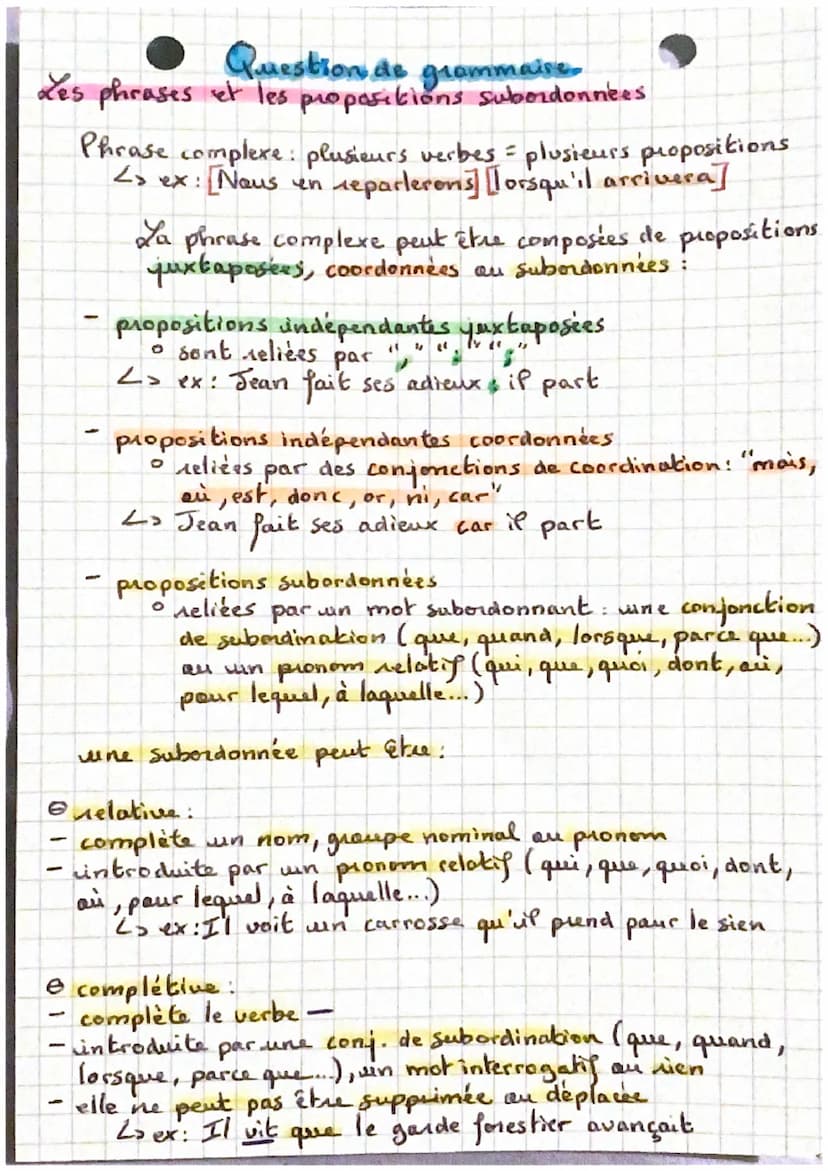 Question de grammaire
Les phrases et les propositions subordonnées
Phrase complexe : plusieurs verbes = plusieurs propositions
↳ ex : [Nous en reparlerons] [lorsqu'il arrivera]
La phrase complexe peut être composées de propositions
juxtaposées, coordonnées ou subordonnées :
- propositions indépendantes juxtaposées
° sont reliées par "," ":" ";"
↳ ex : Jean fait ses adieux ; il part
- propositions indépendantes coordonnées
° reliées par des conjonctions de coordination : "mais,
où, est, donc, or, ni, car"
↳ Jean fait ses adieux car il part
- propositions subordonnées
° reliées par un mot subordonnant : une conjonction
de subordination (que, quand, lorsque, parce que...)
ou un pronom relatif (qui, que, quoi, dont, où,
pour lequel, à laquelle...)
une subordonnée peut être :
⊖ relative :
- complète un nom, groupe nominal ou pronom
- introduite par un pronom relatif (qui, que, quoi, dont,
où, pour lequel, à laquelle...)
↳ ex : Il voit un carrosse qu'il prend pour le sien
⊖ complétive :
- complète le verbe —
- introduite par une conj. de subordination (que, quand,
lorsque, parce que...), un mot interrogatif ou rien
- elle ne peut pas être supprimée ou déplacée
↳ ex : Il vit que le garde forestier avançait